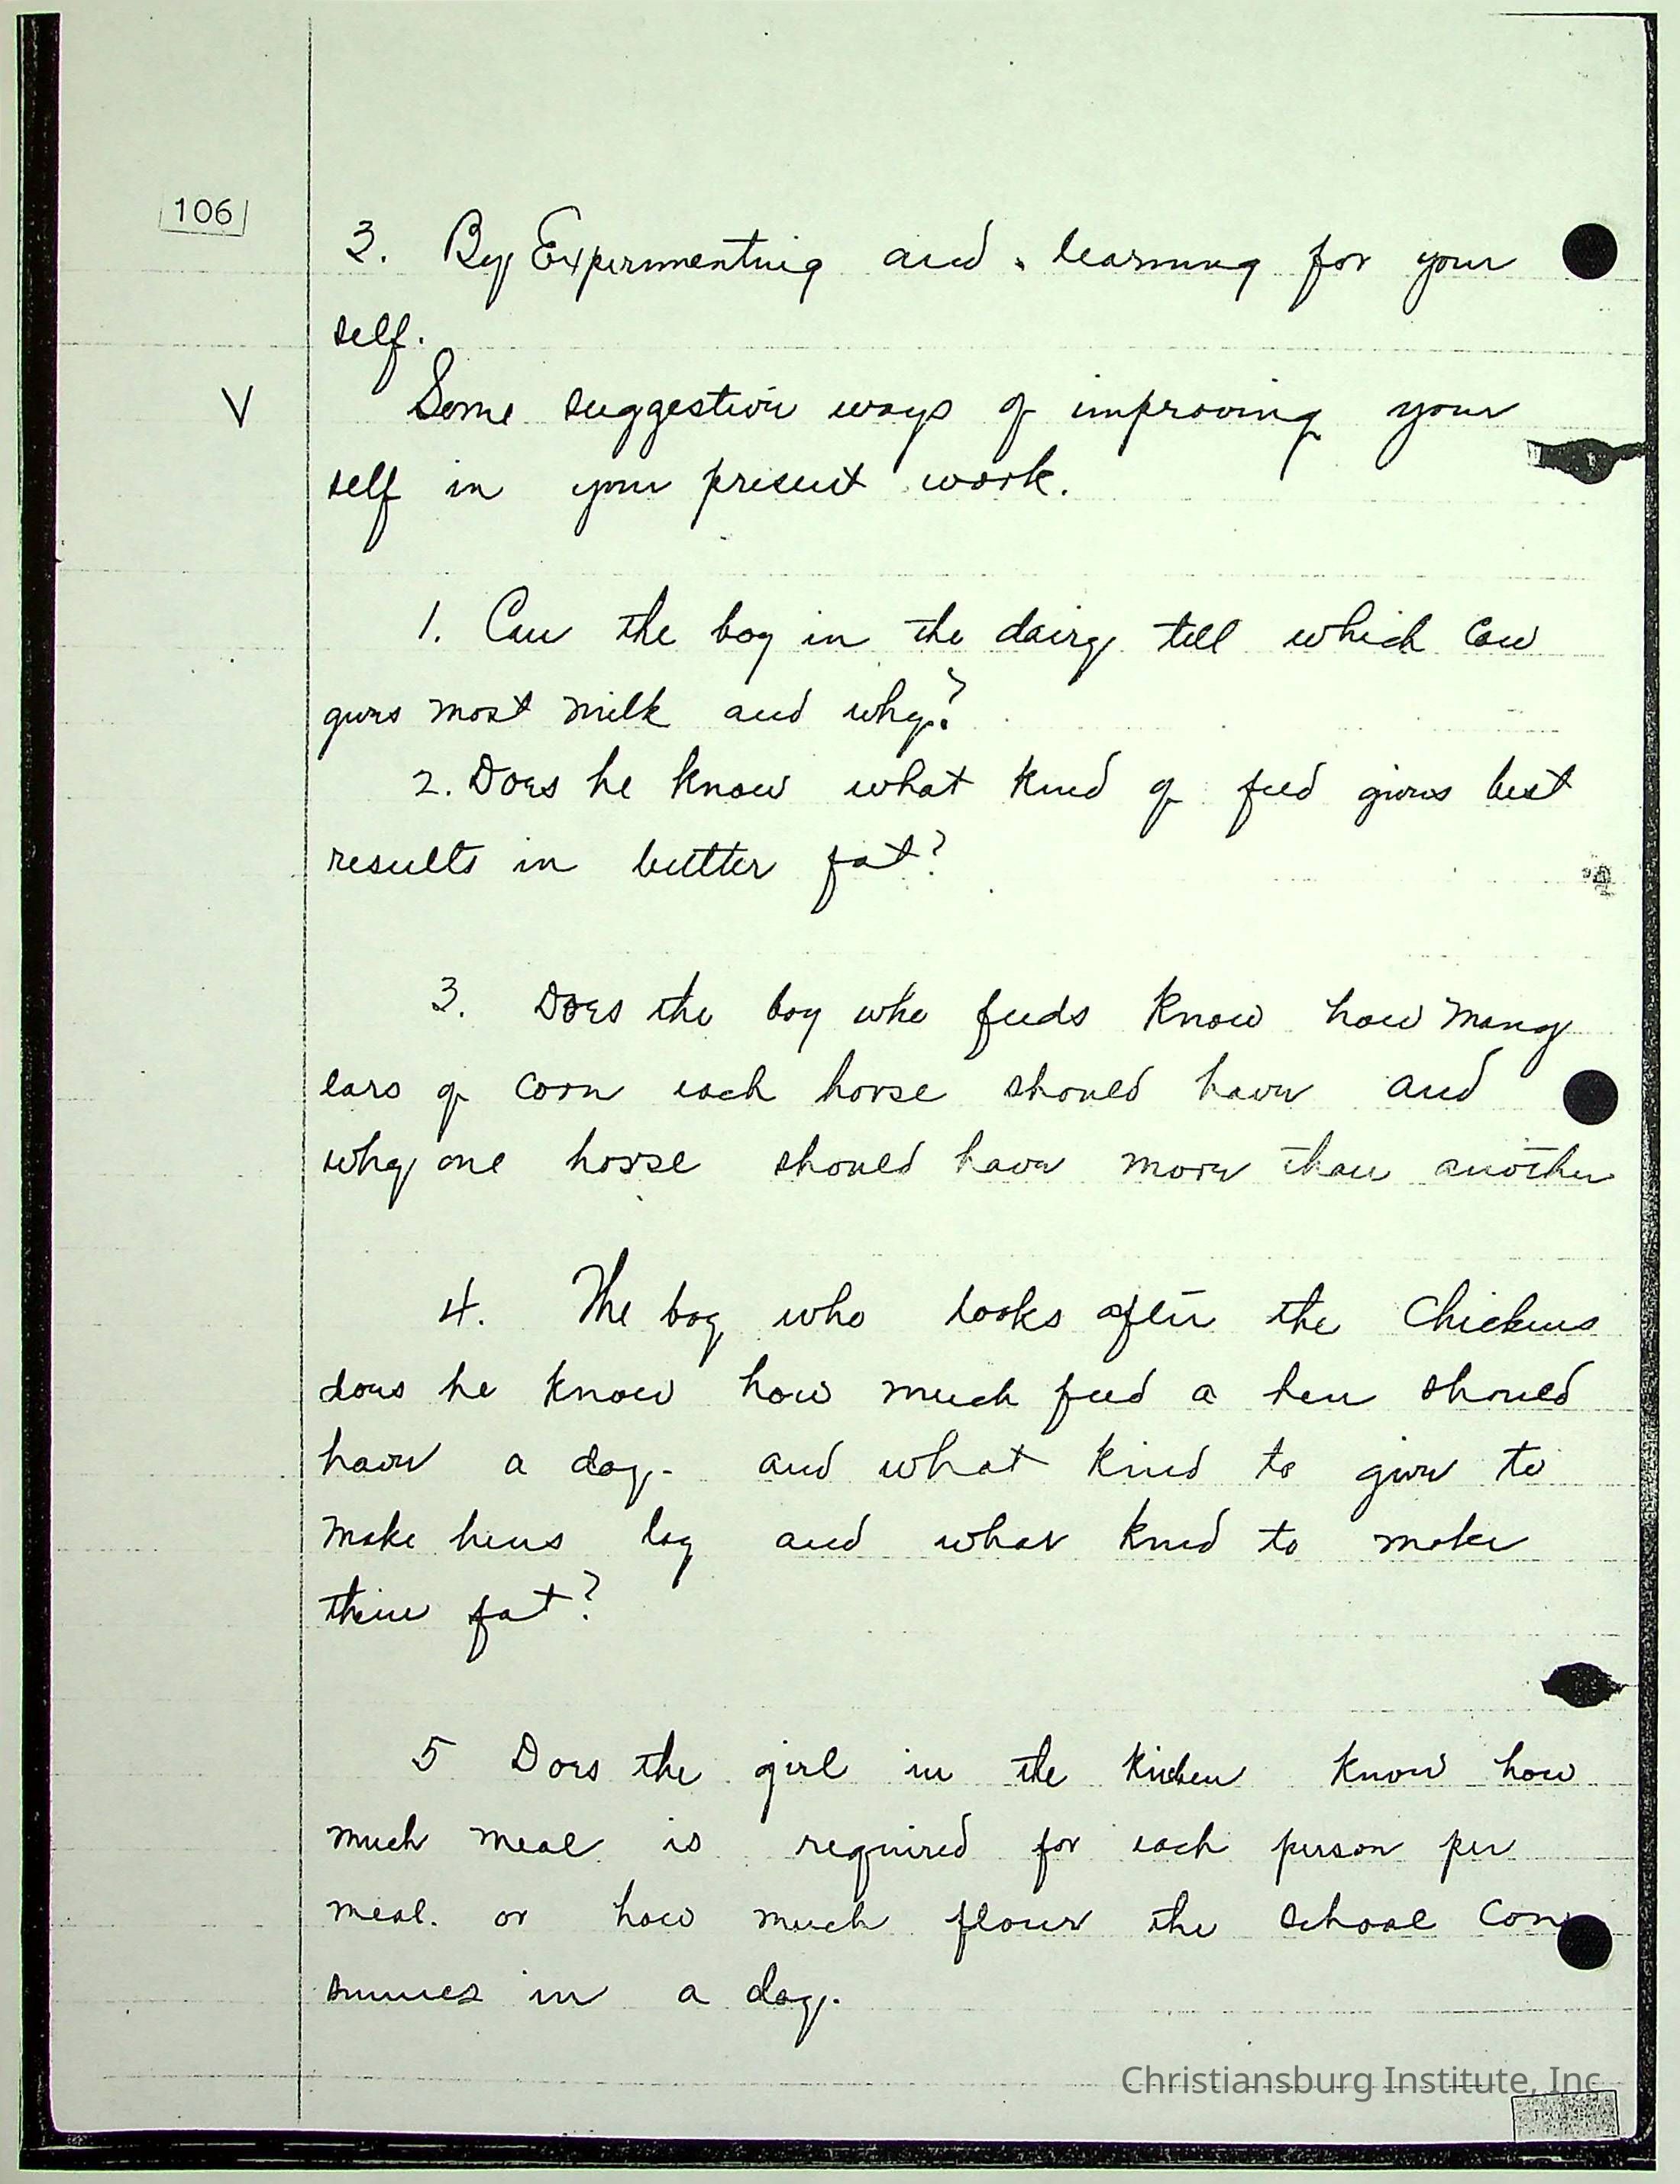 106
3. By Experimenting and learning for your
self.
V Some suggestive ways of improving your
self in your present work.
1. Can the boy in the dairy tell which Cow
gives most milk and why?
2. Does he know what kind of feed gives best
results in butter fat?
3. Does the boy who feeds know how many
ears of corn each horse should have and
why one horse should have more than another
4. The boy who looks after the Chickens
does he know how much feed a hen should
have a day. and what kind to give to
make hens lay and what kind to make
them fat?
5 Does the girl in the kichen know how
much meal is required for each person per
meal. or how much flour the school con
sumes in a day.
Christiansburg Institute, Inc